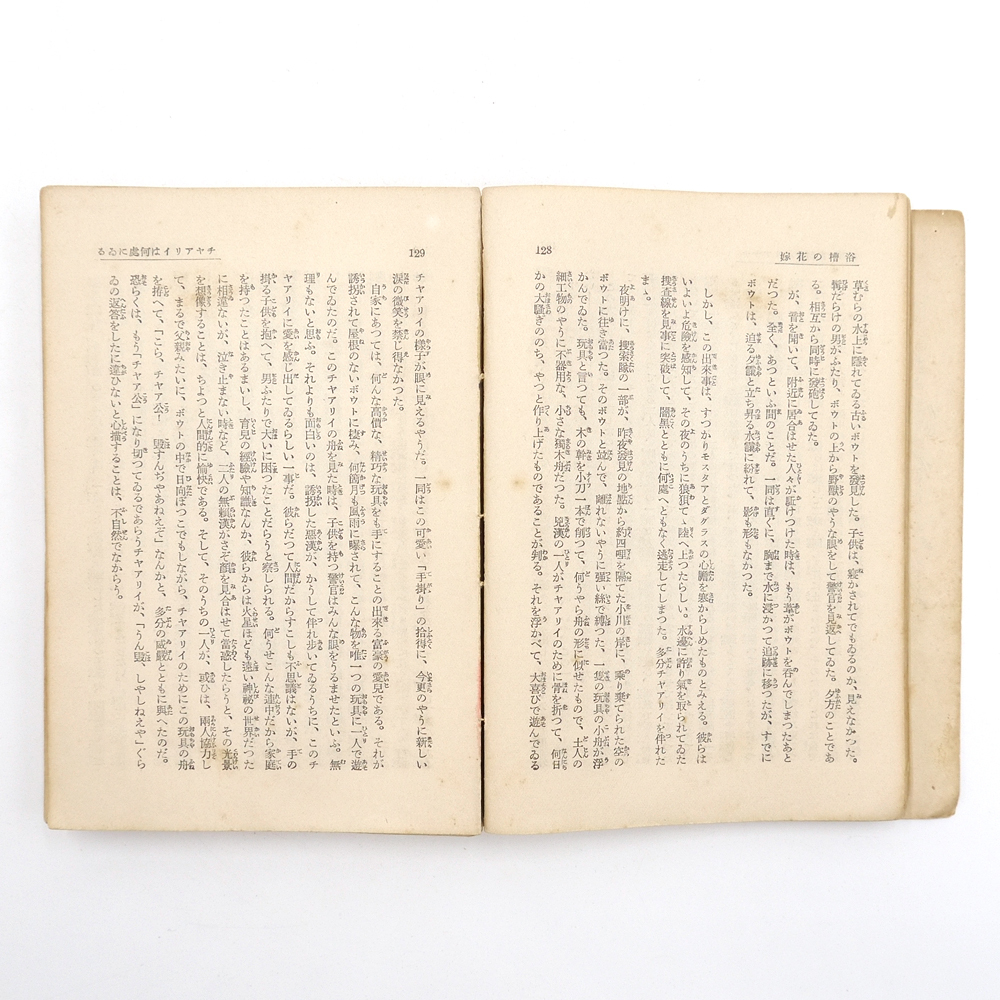 浴槽の花嫁
128
草むらの水上に隱れてゐる古いボウトを發見した。子供は、寢かされてでもゐるのか、見えなかつた。
髯だらけの男がふたり、ボウトの上から野獸のやうな眼をして警官を見返してゐた。夕方のことであ
る。相互から同時に發砲してゐた。
が、音を聞いて、附近に居合はせた人々が駈けつけた時は、もう葦がボウトを呑んでしまつたあと
だつた。全く、あつといふ間のことだ。一同は直ぐに、胸まで水に浸かつて追跡に移つたが、すでに
ボウトは、迫る夕靄と立ち昇る水霧に紛れて、影も形もなかつた。
しかし、この出來事は、すつかりモスタアとダグラスの心膽を寒からしめたものとみえる。彼らは
いよいよ危險を感知して、その夜のうちに狼狽てゝ陸へ上つたらしい。水邊に許り氣を取られてゐた
捜査線を見事に突破して、闇黑とともに何處へともなく逃走してしまつた。多分チャアリイを伴れた
まゝ。
夜明けに、捜索隊の一部が、昨夜發見の地點から約四哩を隔てた小川の岸に、乘り棄てられた空の
ボウトに往き當つた。そのボウトと並んで、離れないやうに强い絲で縛つた、一隻の玩具の小舟が浮
かんでゐた。玩具と言つても、木の幹を小刀一本で削つて、何うやら舟の形に似せたもので、土人の
細工物のやうに不器用な、小さな獨木舟だつた。兇漢の一人がチャアリイのために骨を折つて、何日
かの大騷ぎののち、やつと作り上げたものであることが判る。それを浮かべて、大喜びで遊んでゐる
チヤアリイは何處にゐる
129
チャアリイの樣子が眼に見えるやうだ。一同はこの可愛い「手掛り」の拾得に、今更のやうに新しい
淚の微笑を禁じ得なかつた。
自家にあつては、何んな高價な、精巧な玩具をも手にすることの出來る富豪の愛兒である。それが
誘拐されて屋根のないボウトに棲み、何箇月も風雨に曝されて、こんな物を唯一つの玩具に一人で遊
んでゐたのだ。このチャアリイの舟を見た時は、子供を持つ警官はみんな眼をうるませたといふ。無
理もないと思ふ。それよりも面白いのは、誘拐した惡漢が、かうして伴れ歩いてゐるうちに、このチ
ャアリイに愛を感じ出してゐるらしい一事だ。彼らだつて人間だからすこしも不思議はないが、手の
掛る子供を抱へて、男ふたりで大いに困つたことだらうと察しられる。何うせこんな連中だから家庭
を持つたことはあるまいし、育兒の經驗や知識なんか、彼らからは火星ほども遠い神祕の世界だつた
に相違ないが、泣き止まない時など、二人の無賴漢がさぞ顏を見合はせて當惑したらうと、その光景
を想像することは、ちよつと人間的に愉快である。そして、そのうちの一人が、或ひは、兩人協力し
て、まるで父親みたいに、ボウトの中で日向ぼつこでもしながら、チャアリイのためにこの玩具の舟
を拵へて、「こら、チャア公！　毀すんぢやあねえぞ」なんかと、多分の威嚴とともに與へたのだ。
恐らくは、もう「チャア公」になり切つてゐるであらうチャアリイが、「うん毀、しやしねえや」ぐら
ゐの返答をしたに違ひないと心描することは、不自然でなからう。